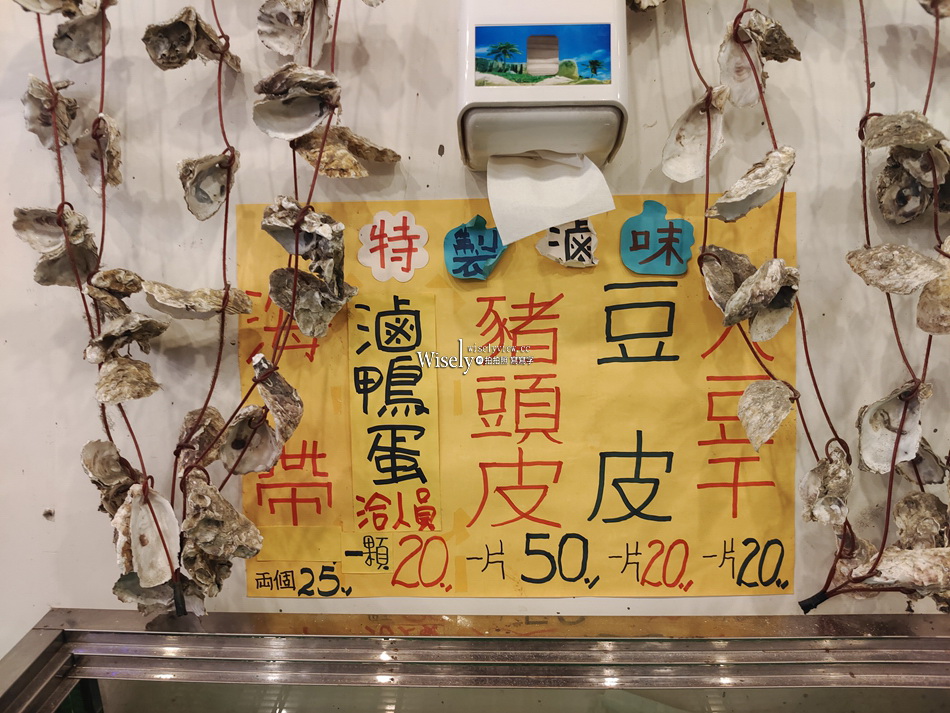 特製滷味
海帶
両個25.,
滷鴨蛋
洽人員
一顆20.,
豬頭皮
一片50.,
豆皮
一片20.,
豆干
一片20.,
Wisely
wiselyview.cc
拍拍照 寫寫字